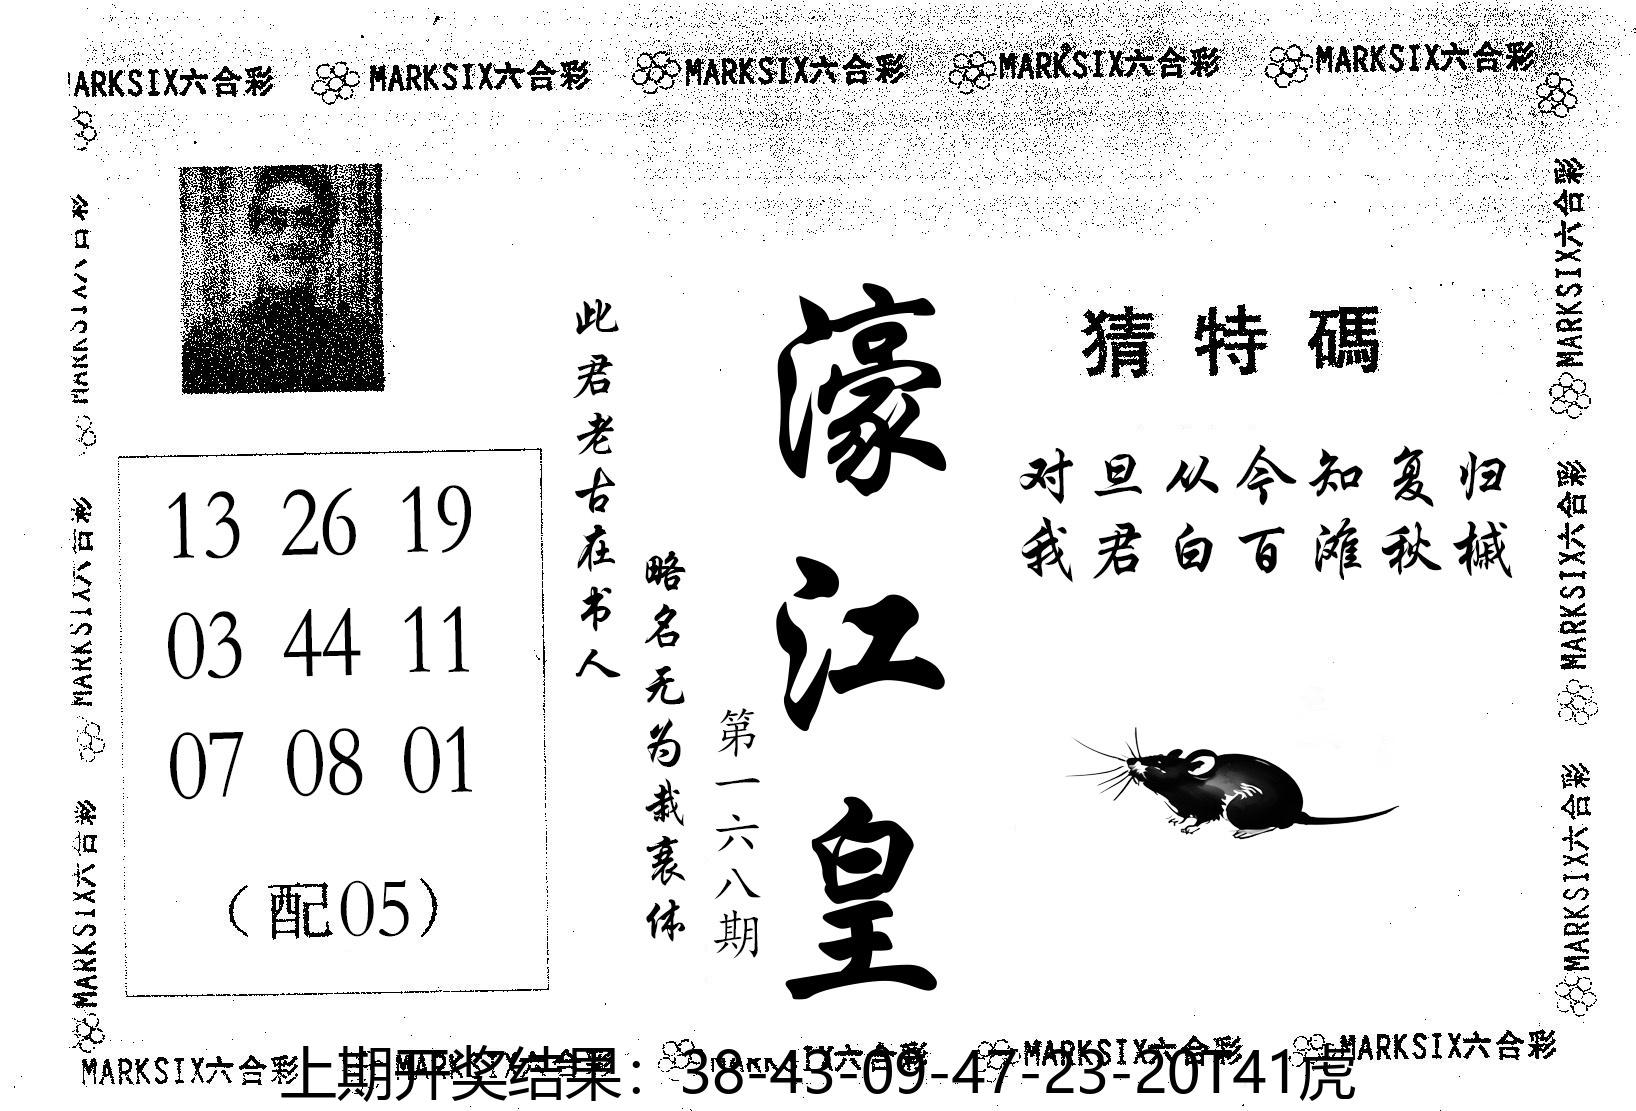 MARKSIX六合彩 MARKSIX六合彩 MARKSIX六合彩 MARKSIX六合彩 MARKSIX六合彩
猜特碼
对旦从今知复归
我君白百滩秋槭
濠江皇
第一六八期
此君老古在书人
略名无为栽衰体
13 26 19
03 44 11
07 08 01
(配05)
MARKSIX六合彩
MARKSIX六合彩
MARKSIX六合彩
MARKSIX六合彩
MARKSIX六合彩
MARKSIX六合彩
MARKSIX六合彩 MARKSIX六合彩 MARKSIX六合彩 MARKSIX六合彩 MARKSIX六合彩
上期开奖结果：38-43-09-47-23-20T41虎